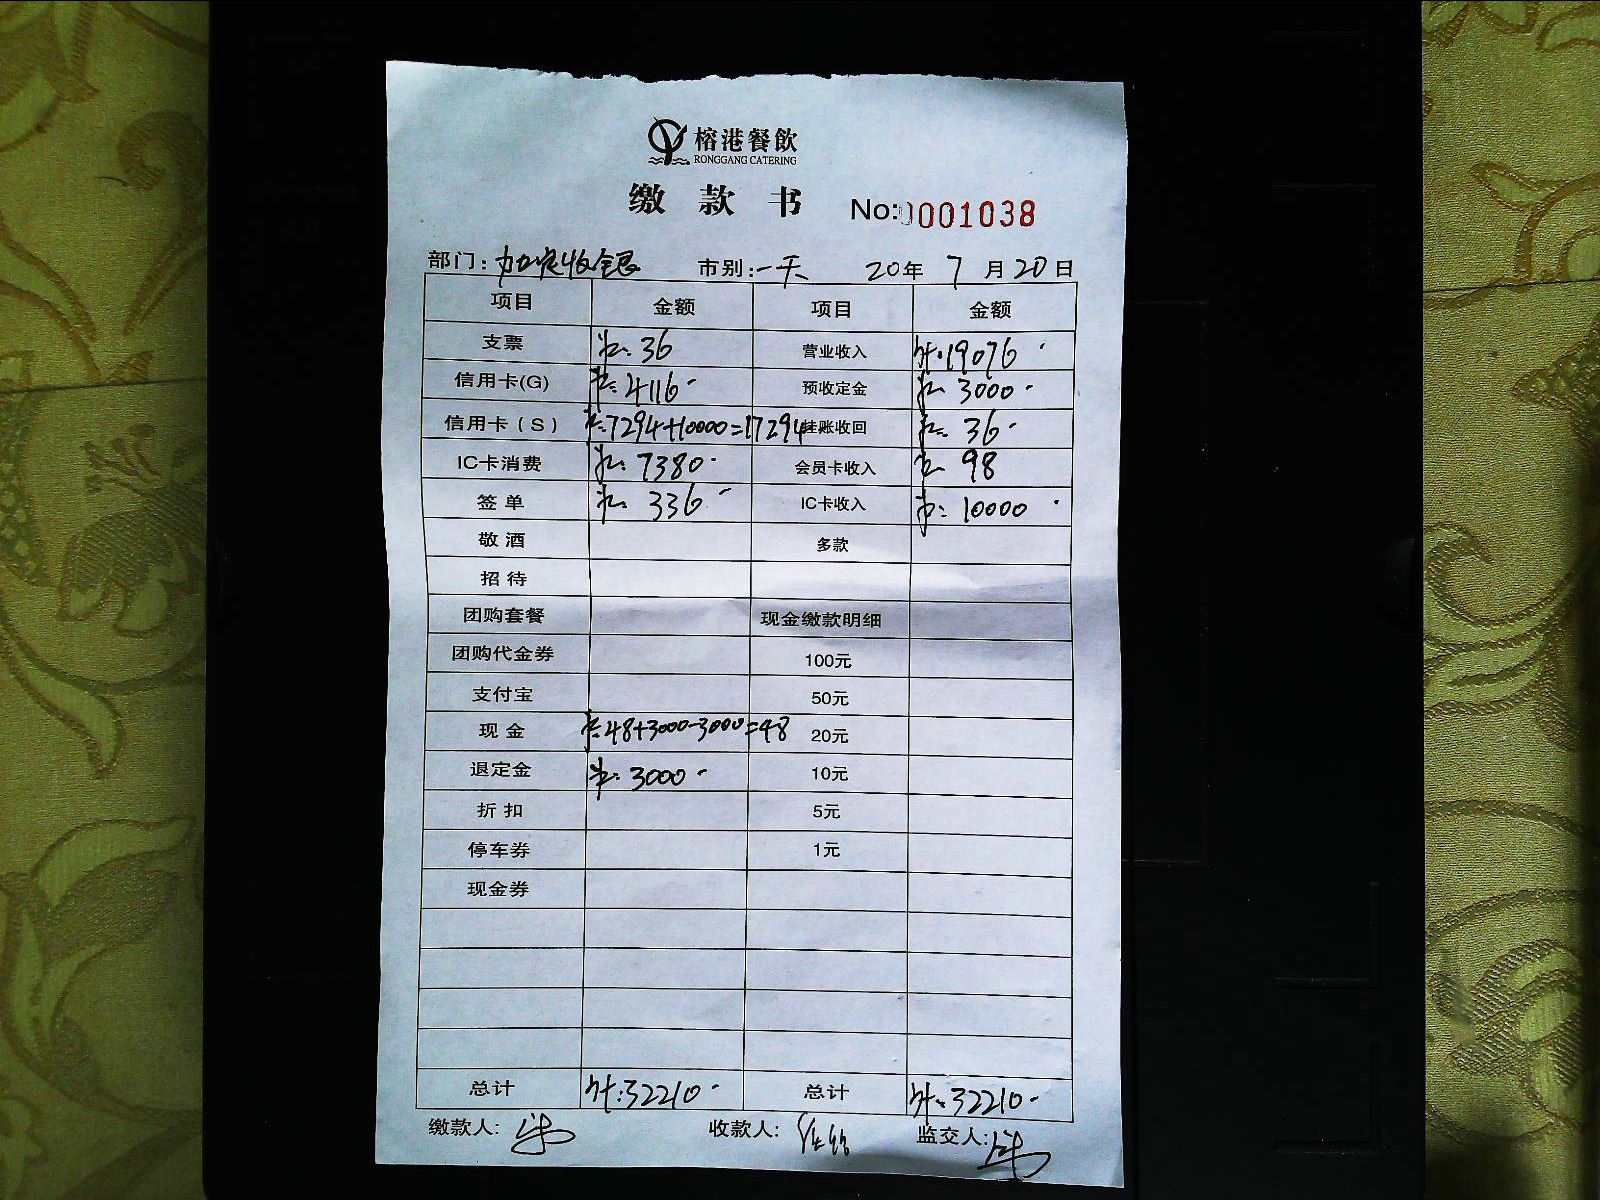 榕港餐飲
RONGGANG CATERING
缴款书 No:0001038
部门: 收银 市别:一天 20年7月20日
项目 金额 项目 金额
支票 36 营业收入 19076
信用卡(G) 4116 预收定金 3000
信用卡(S) 7294+10000=17294 挂账收回 36
IC卡消费 7380 会员卡收入 98
签单 336 IC卡收入 10000
敬酒 多款
招待
团购套餐 现金缴款明细
团购代金券 100元
支付宝 50元
现金 48+3000-3000=48 20元
退定金 3000 10元
折扣 5元
停车券 1元
现金券
总计 32210 总计 32210
缴款人: 收款人: 监交人: